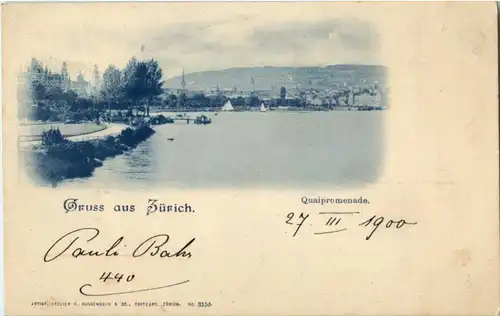 Gruss aus Zürich.
Quaipromenade.
27. III 1900
Pauli Bahr
440
ARTIST. ATELIER H. GUGGENHEIM & Co., EDITEURS, ZÜRICH. No. 3150